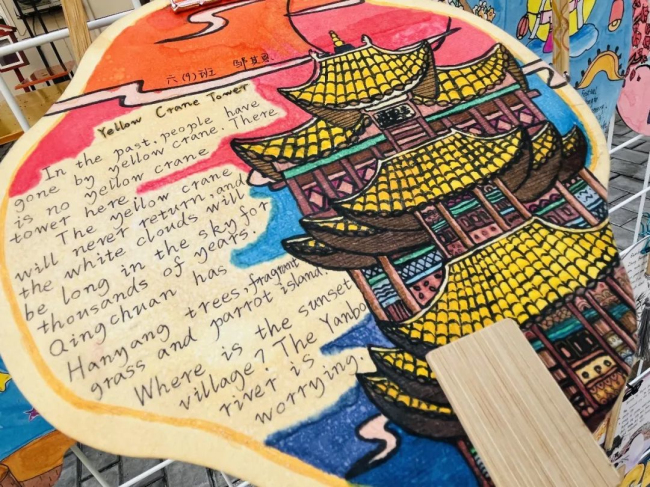 六(9)班
Yellow Crane Tower
In the past, people have
gone by yellow crane. There
is no yellow crane
tower here.
The yellow crane
will never return, and
the white clouds will
be long in the sky for
thousands of years.
Qingchuan has
Hanyang trees, fragrant
grass and parrot island.
Where is the sunset
village? The Yanbo
river is
worrying.